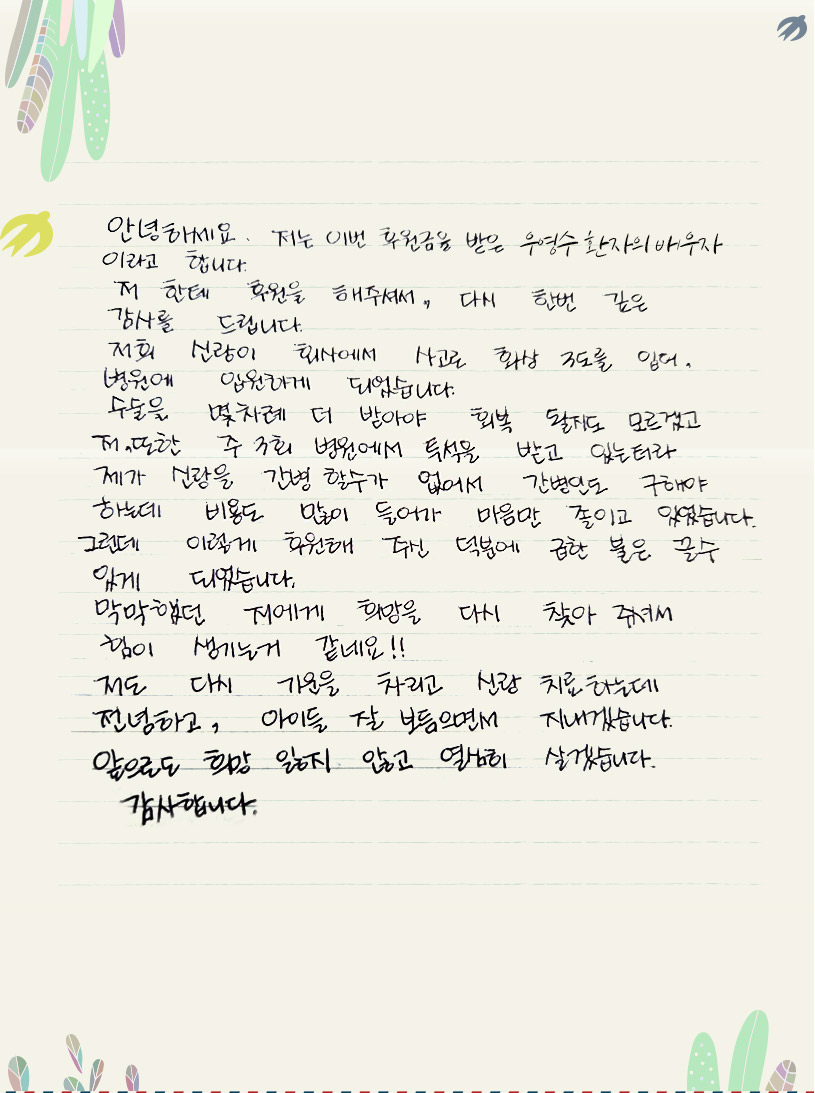 안녕하세요. 저는 이번 후원금을 받은 우영수 환자의 배우자
이라고 합니다.
저 한테 후원을 해주셔서, 다시 한번 깊은
감사를 드립니다.
저희 신랑이 회사에서 사고로 화상 3도를 입어,
병원에 입원하게 되었습니다.
수술을 몇차례 더 받아야 회복 될지도 모르겠고
저,또한 주 3회 병원에서 투석을 받고 있는터라
제가 신랑을 간병 할수가 없어서 간병인도 구해야
하는데 비용도 많이 들어가 마음만 졸이고 있었습니다.
그런데 이렇게 후원해 주신 덕분에 급한 불은 끌수
있게 되었습니다.
막막했던 저에게 희망을 다시 찾아 주셔서
힘이 생기는거 같네요!!
저도 다시 기운을 차리고 신랑 치료하는데
전념하고, 아이들 잘 보듬으면서 지내겠습니다.
앞으로도 희망 잃하지 않고 열심히 살겠습니다.
감사합니다.